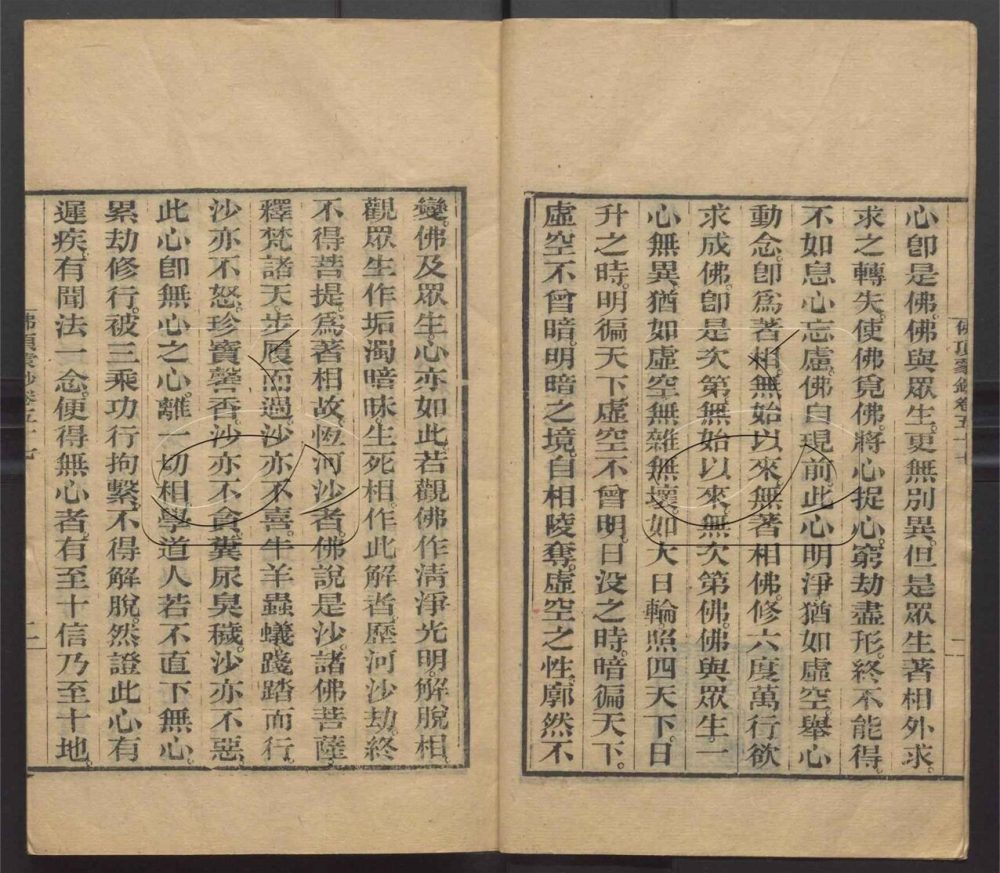 心卽是佛。佛與眾生。更無別異。但是眾生著相外求。
求之轉失。使佛覓佛。將心捉心。窮劫盡形。終不能得。
不如息心忘慮。佛自現前。此心明淨。猶如虛空。舉心
動念。卽爲著相。無始以來。無著相佛。修六度萬行。欲
求成佛。卽是次第。無始以來。無次第佛。佛與眾生。一
心無異。猶如虛空。無雜無壞。如大日輪。照四天下。日
升之時。明徧天下。虛空不曾明。日没之時。暗徧天下。
虛空不曾暗。明暗之境。自相陵奪。虛空之性。廓然不
變。佛及眾生。心亦如此。若觀佛作清淨光明。解脫相。
觀眾生作垢濁暗昧生死相。作此解者。歷河沙劫。終
不得菩提。爲著相故。恆河沙者。佛說是沙。諸佛菩薩
釋梵諸天步履而過。沙亦不喜。牛羊蟲蟻踐踏而行。
沙亦不怒。珍寶馨香。沙亦不貪。糞尿臭穢。沙亦不惡。
此心卽無心之心。離一切相。學道人若不直下無心。
累劫修行。被三乘功行拘繫。不得解脫。然證此心有
遲疾。有聞法一念。便得無心者。有至十信乃至十地。